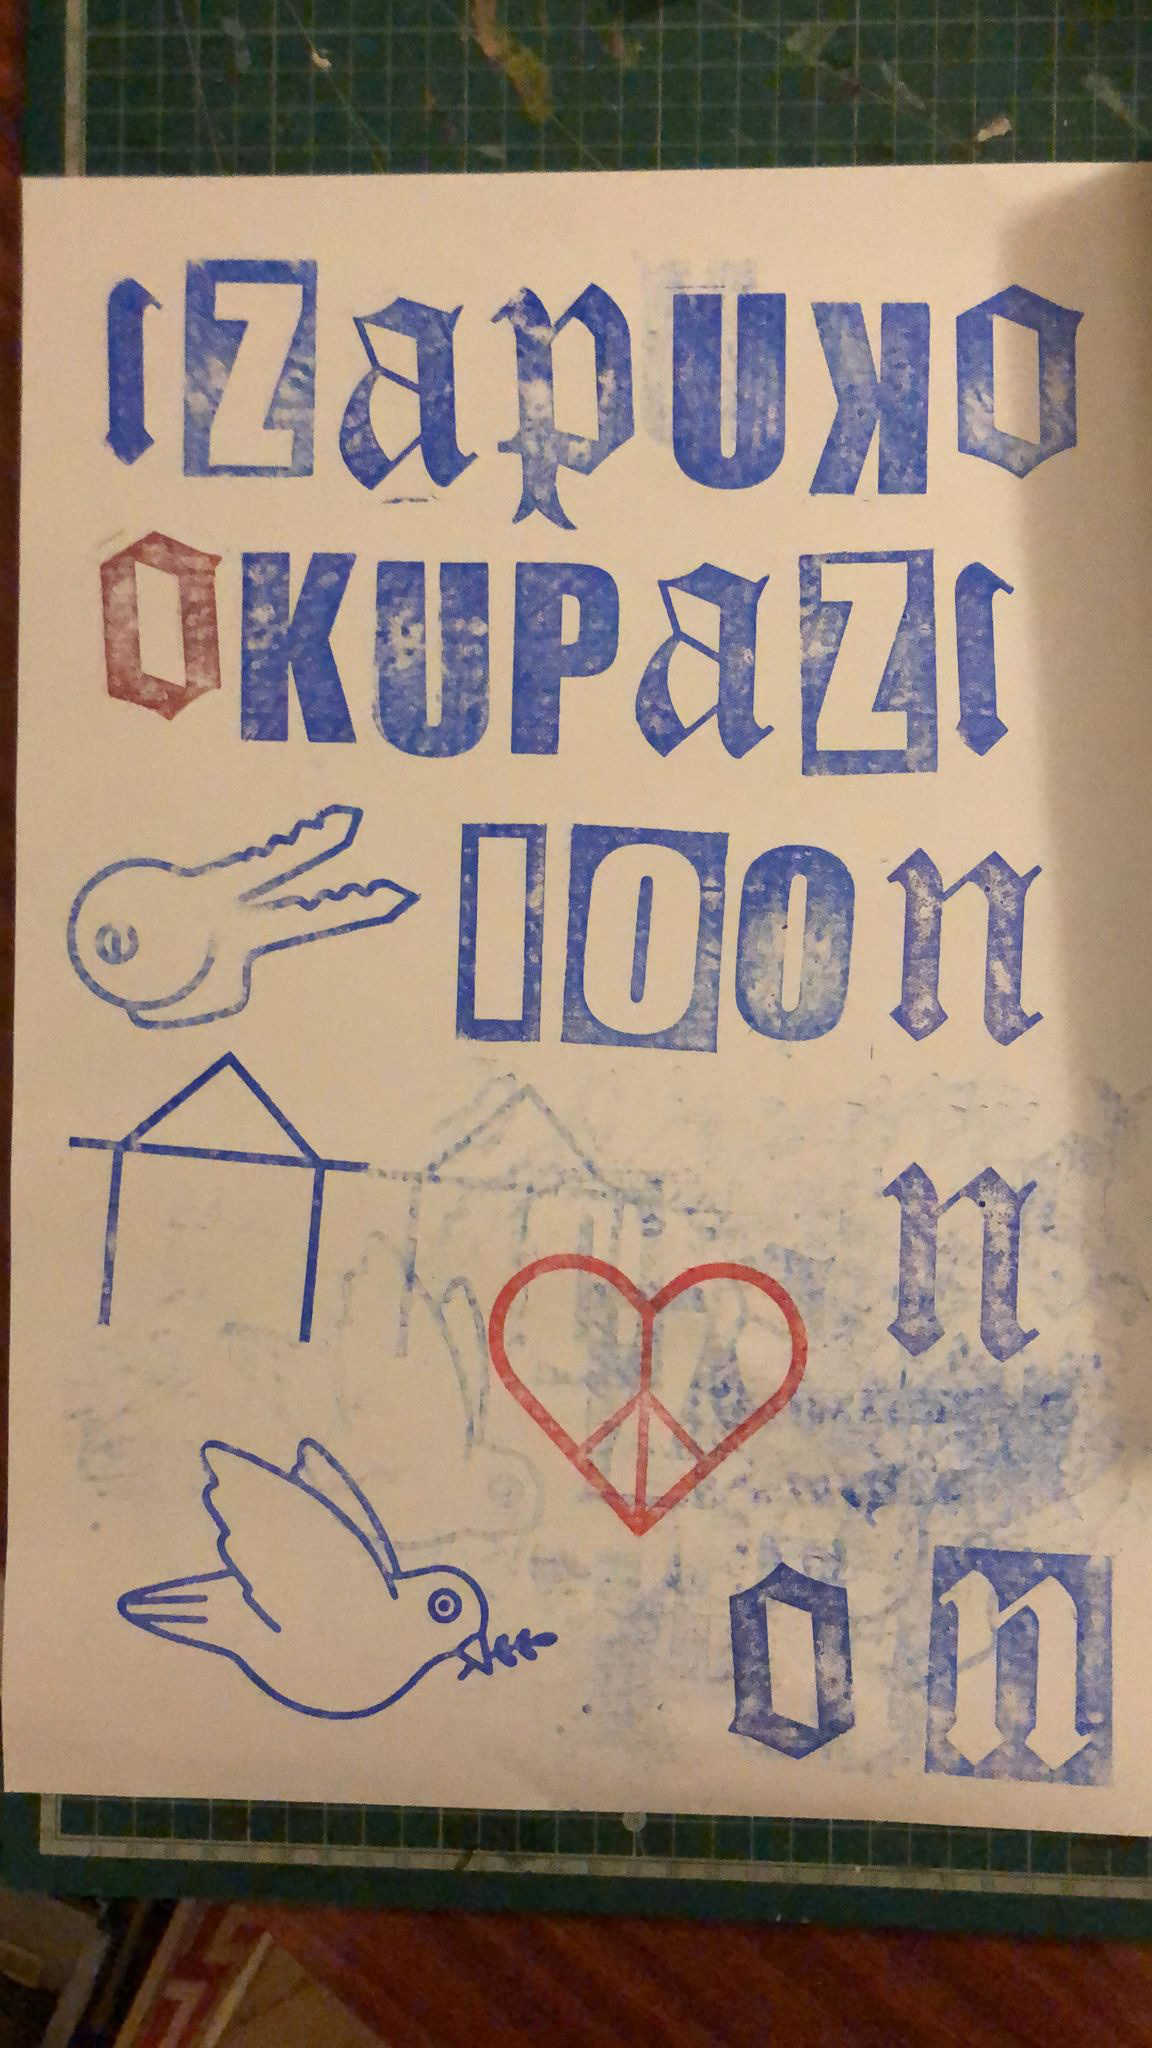 ızapuko
oKUPaZı
e IOOn
n
on